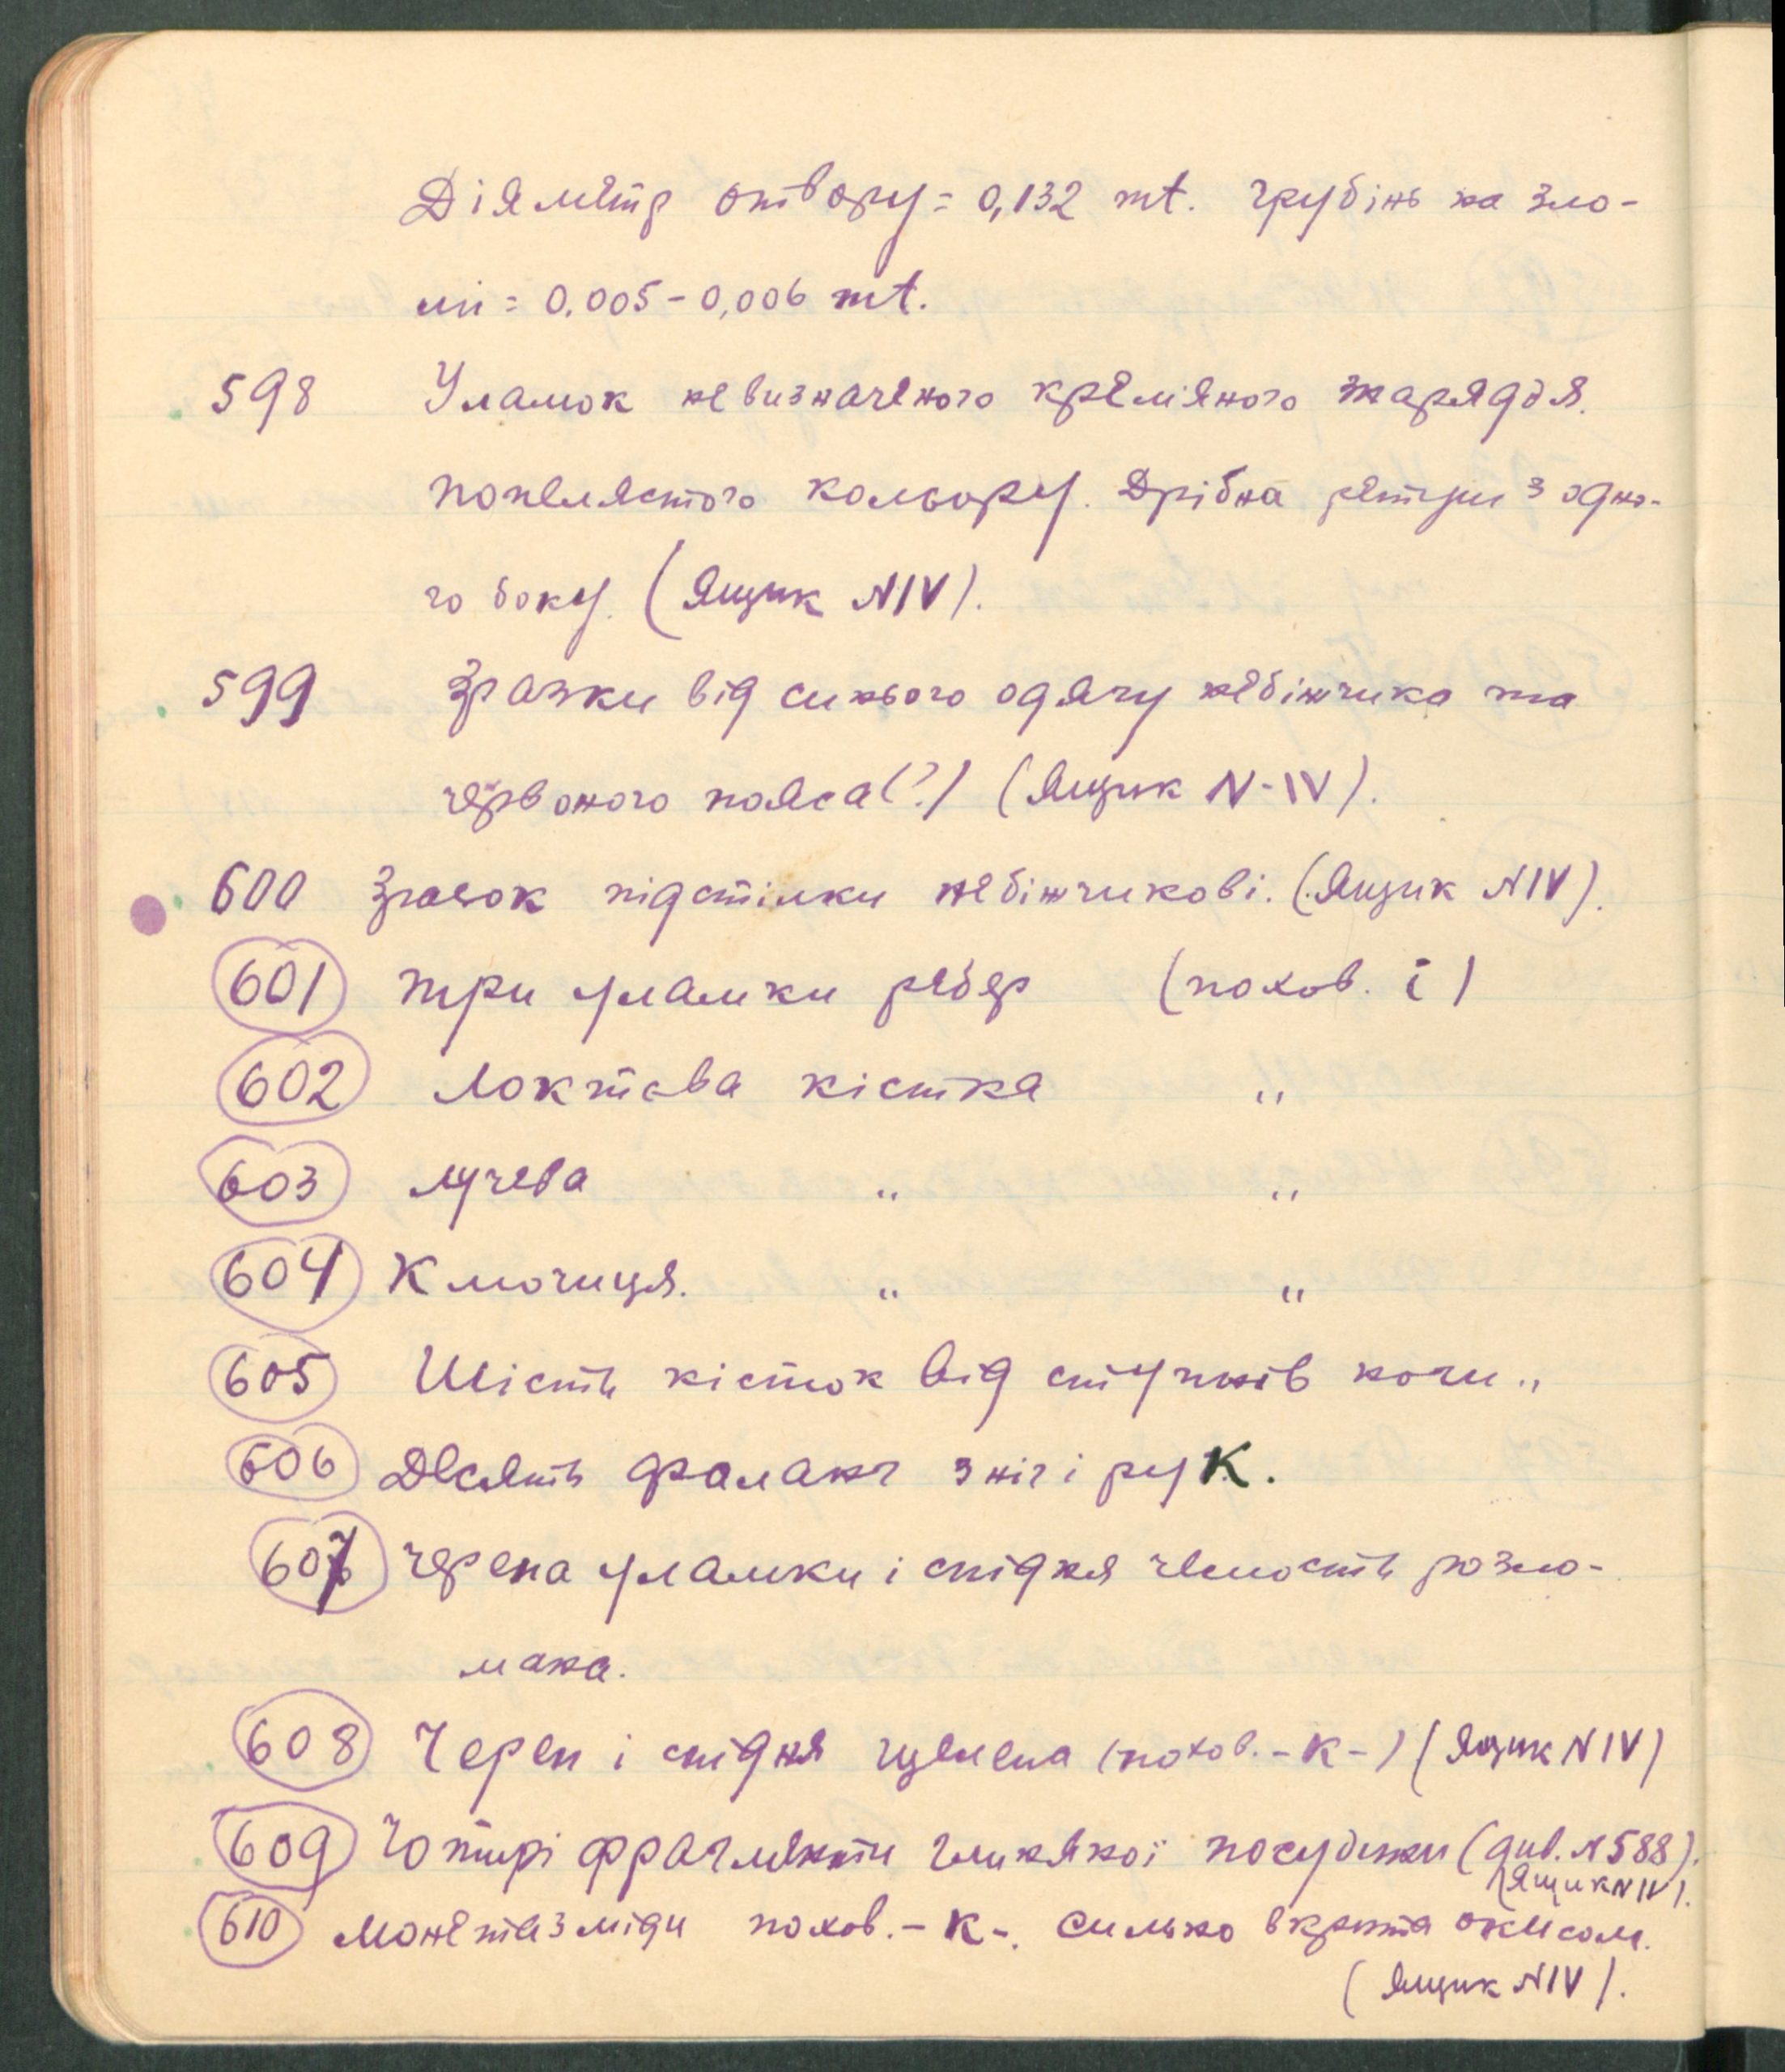 Діяметр отвору = 0,132 mt. Грубінь на зло-
мі = 0,005 - 0,006 mt.
598 Уламок невизначеного кремʼяного знаряддя.
попелястого кольору. Дрібна ретуш з одно-
го боку. (Ящик N IV).
599 Зразки від синього одягу небіжчика та
червоного пояса(?) (Ящик N-IV).
600 Зразок підстилки небіжчикові. (Ящик N IV).
601 Три уламки ребер (похов. і)
602 Локтева кістка "
603 лучева " "
604 Ключиця. " "
605 Шість кісток від ступнів ноги "
606 Десять фаланг з ніг і рук.
607 черепа уламки і спідня челюсть розло-
мана.
608 Череп і спідня щелепа (похов. - К -) (Ящик N IV)
609 Чотирі фрагменти глиняної посудини (див. N 588).
(Ящик N IV).
610 Монета з міди похов. - К -. Сильно вкрита окисом.
(Ящик N IV).